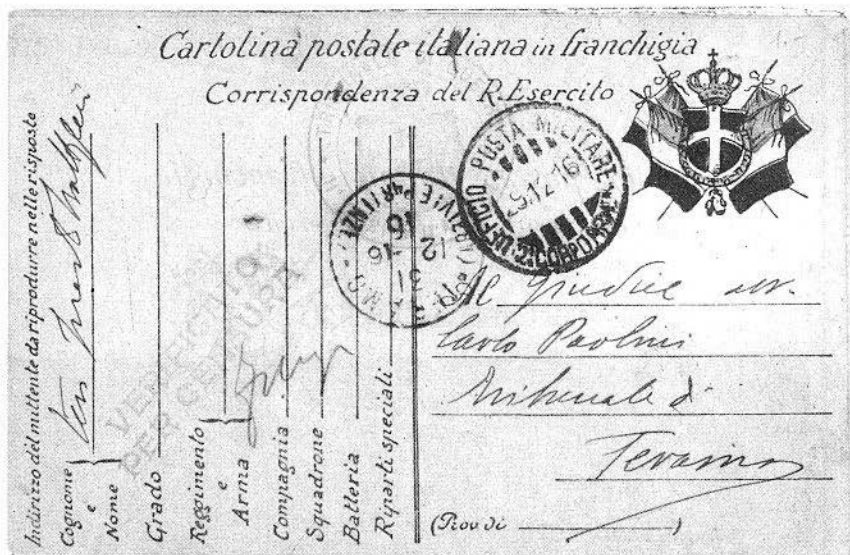 Cartolina postale italiana in franchigia
Corrispondenza del R. Esercito
Indirizzo del mittente da riprodurre nelle risposte
Cognome
e
Nome
Grado
Reggimento
e
Arma
Compagnia
Squadrone
Batteria
Riparti speciali
VERIFICATO
PER CENSURA
UFFICIO POSTA MILITARE
29.12.16
2º CORPO
ARRIVI E PARTENZE
31
12
16
Al Giudice avv.
Carlo Paolini
Tribunale di
Teramo
(Prov di )